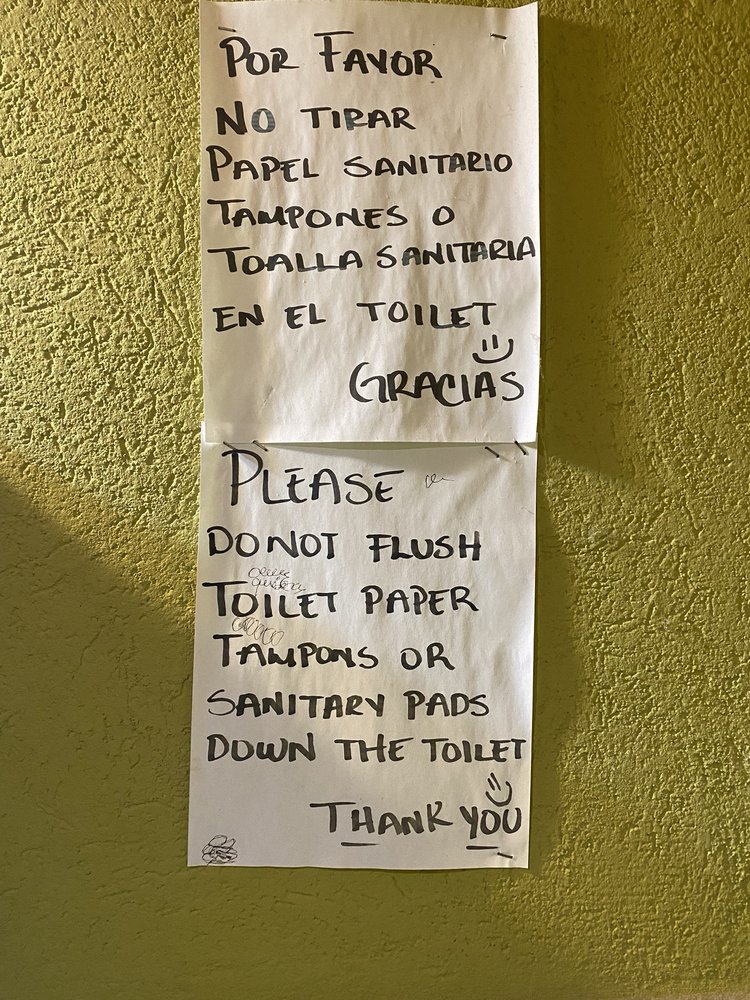 POR FAVOR
NO TIRAR
PAPEL SANITARIO
TAMPONES O
TOALLA SANITARIA
EN EL TOILET
GRACIAS
PLEASE
DO NOT FLUSH
TOILET PAPER
TAMPONS OR
SANITARY PADS
DOWN THE TOILET
THANK YOU